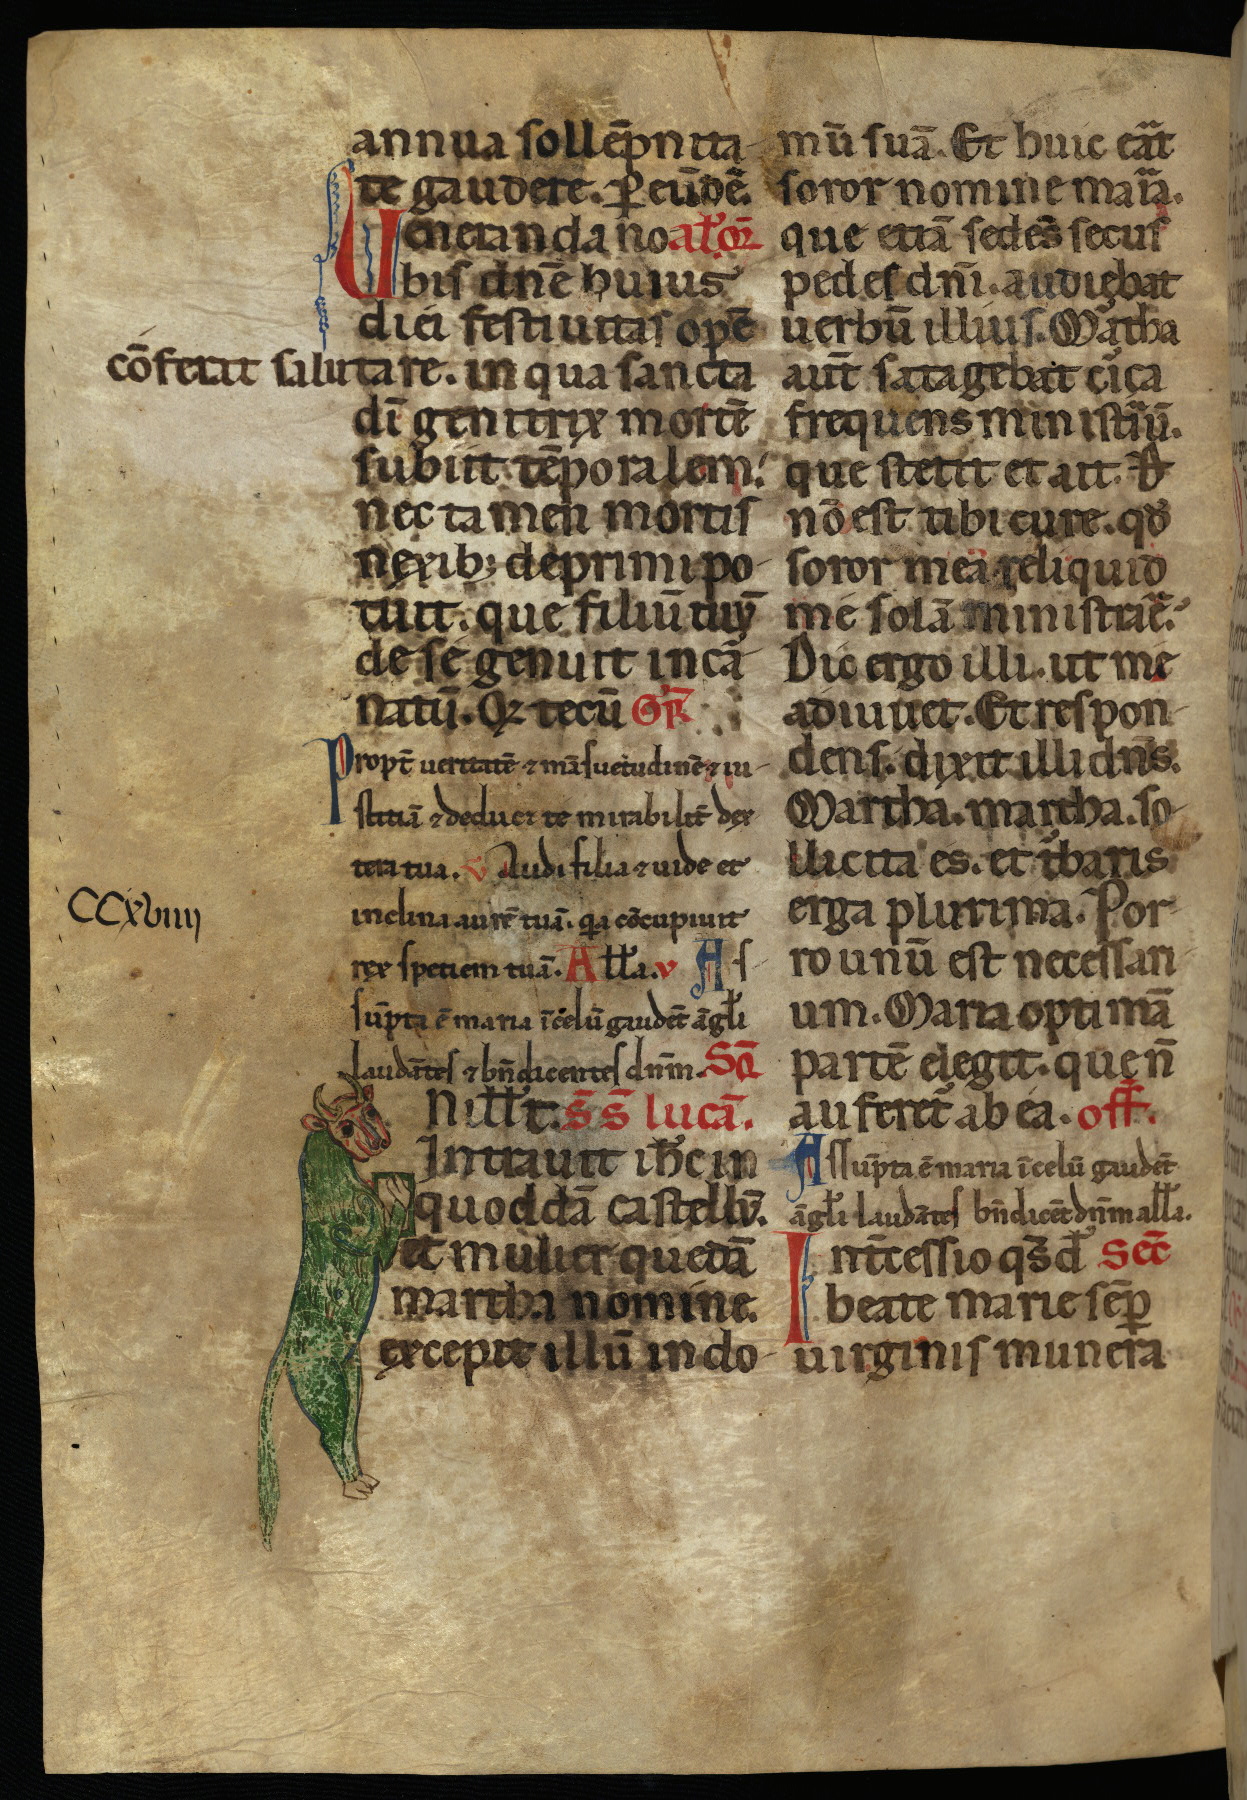 annua sollēpnita-
te gaudere. P̱ eūdē.
Veneranda no al' or̄
bis dn̄e huius
diei festiuitas opē
cōferat salutare. in qua sancta
dī genitrix mortē
subiit tēporalem.
nec tamen mortis
nexib; deprimi po-
tuit. que filiū tuū
de se genuit incā
natū. Qꝛ tecū Gꝛ̄
Propt̄ ueritatē ⁊ māsuetudinē ⁊ iu-
stitiā ⁊ deducet te mirabilit̄ dex
tera tua. v Audi filia ⁊ uide et
inclina aurē tuā. qͥa cōcupiuit
CCXVIIII
rex speciem tuā. All'a. v As-
sūpta ē maria ī celū gaudēt āgl'i
laudātes ⁊ bn̄dicentes dn̄m. Sq̄
N ill' t. s̄ s̄ lucā.
Intrauit ih'c in
quoddā castellū.
et mulier quedā
martha nomine.
excepit illū in do-
mū suā. Et huic eāt
soror nomine maͥa.
que etiā sedēs secus
pedes dn̄i. audiebat
uerbū illius. Mātha
aūt satagebat cͥca
frequens ministͥiū.
que stetit et ait. D̄
nō est tibi cure. qđ
soror mea reliquid
me solā ministrāe.
Dic ergo illi. ut me
adiuuet. Et respon-
dens. dixit illi dn̄s.
Martha. martha. so-
llicita es. et t̄baris
erga plurima. Por-
ro unū est necessari-
um. Maria optimā
partē elegit. que n̄
auferet̄ ab ea. off̄.
Assūpta ē maria ī celū gaudēt
āgl'i laudātes bn̄dicēt dn̄m all'a.
Int̄cessio qs̄ d' Sec̄
beate marie sēp̱
uirginis munera